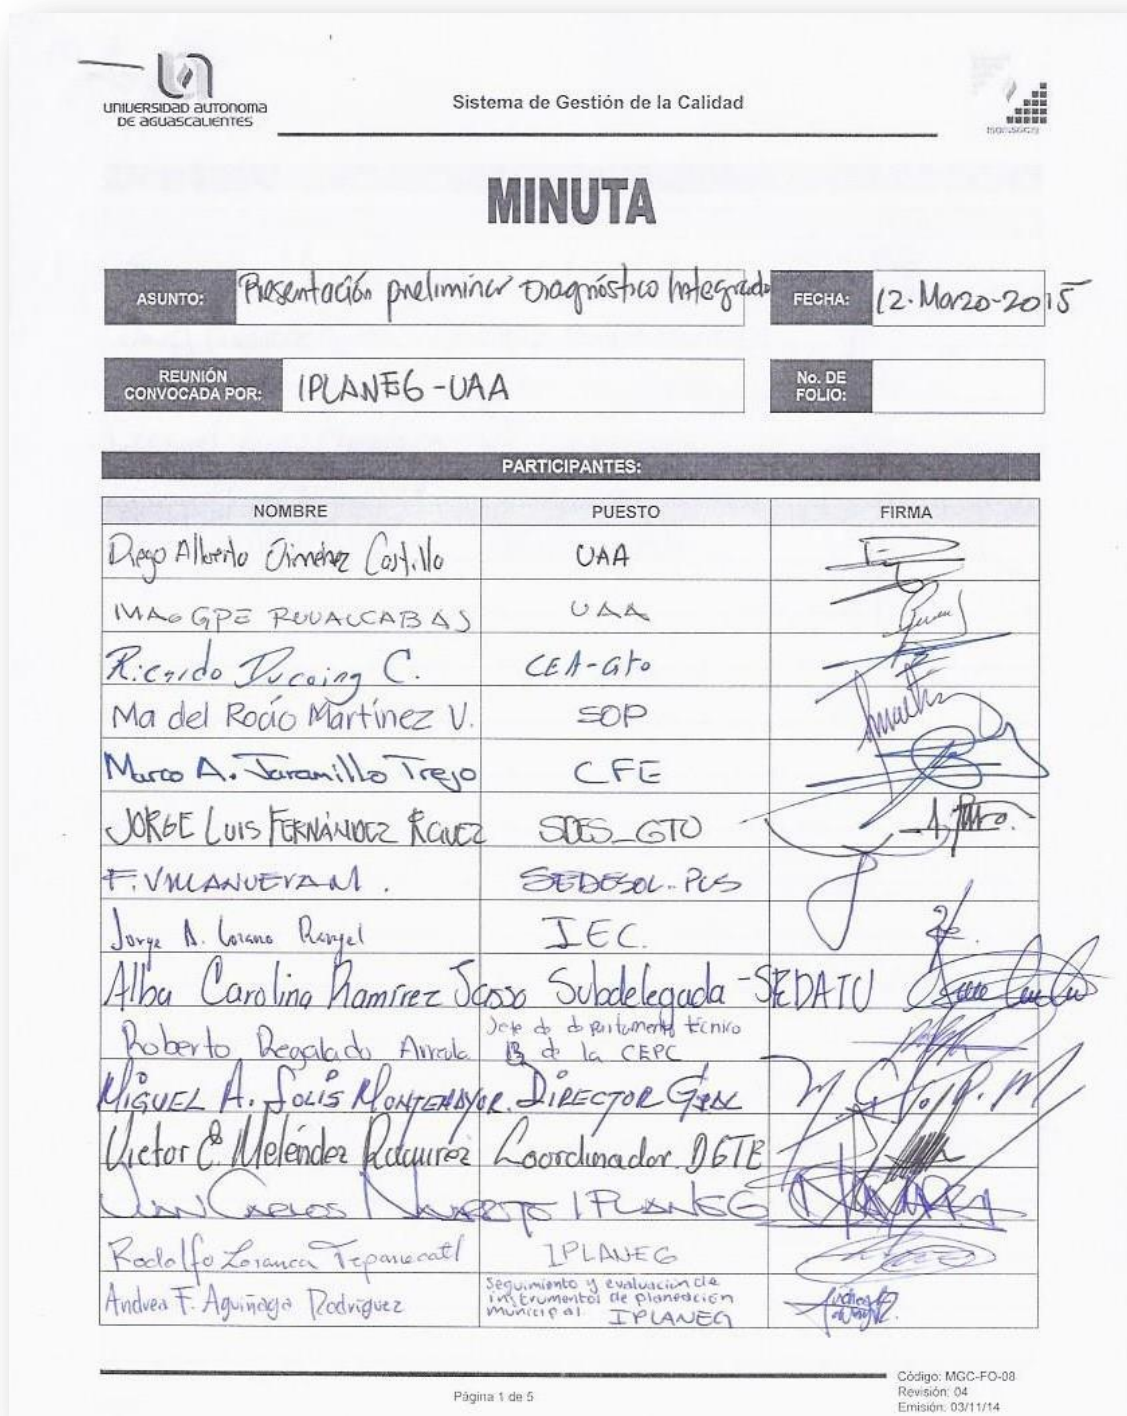 UNIVERSIDAD AUTONOMA
DE AGUASCALIENTES
Sistema de Gestión de la Calidad
MINUTA
ASUNTO: Presentación preliminar Diagnóstico Integrado FECHA: 12-Marzo-2015
REUNIÓN
CONVOCADA POR: IPLANEG-UAA
No. DE
FOLIO:
PARTICIPANTES:
NOMBRE PUESTO FIRMA
Diego Alberto Jiménez Castillo UAA
GPE RUVALCABA S UAA
Ricardo Ducoing C. CEA-Gto
Ma del Rocío Martínez V. SOP
Marco A. Jaramillo Trejo CFE
JORGE LUIS FERNÁNDEZ SDES_GTO
F. VILLANUEVA M. SEDESOL-PCS
Jorge A. Lozano Rangel IEC.
Alba Carolina Ramírez Subdelegada-SEDATU
Roberto Regalado Jefe de departamento técnico
B de la CEPC
MIGUEL A. SOLIS MONTEMAYOR. DIRECTOR GRAL
Victor E. Meléndez Ramírez Coordinador DGTE
JUAN CARLOS IPLANEG NAVARRO
Rodolfo Loranca Tepanecatl IPLANEG
Andrea F. Aguiñaga Rodríguez Seguimiento y evaluación de
instrumentos de planeación
municipal. IPLANEG
Página 1 de 5
Código: MGC-FO-08
Revisión: 04
Emisión: 03/11/14